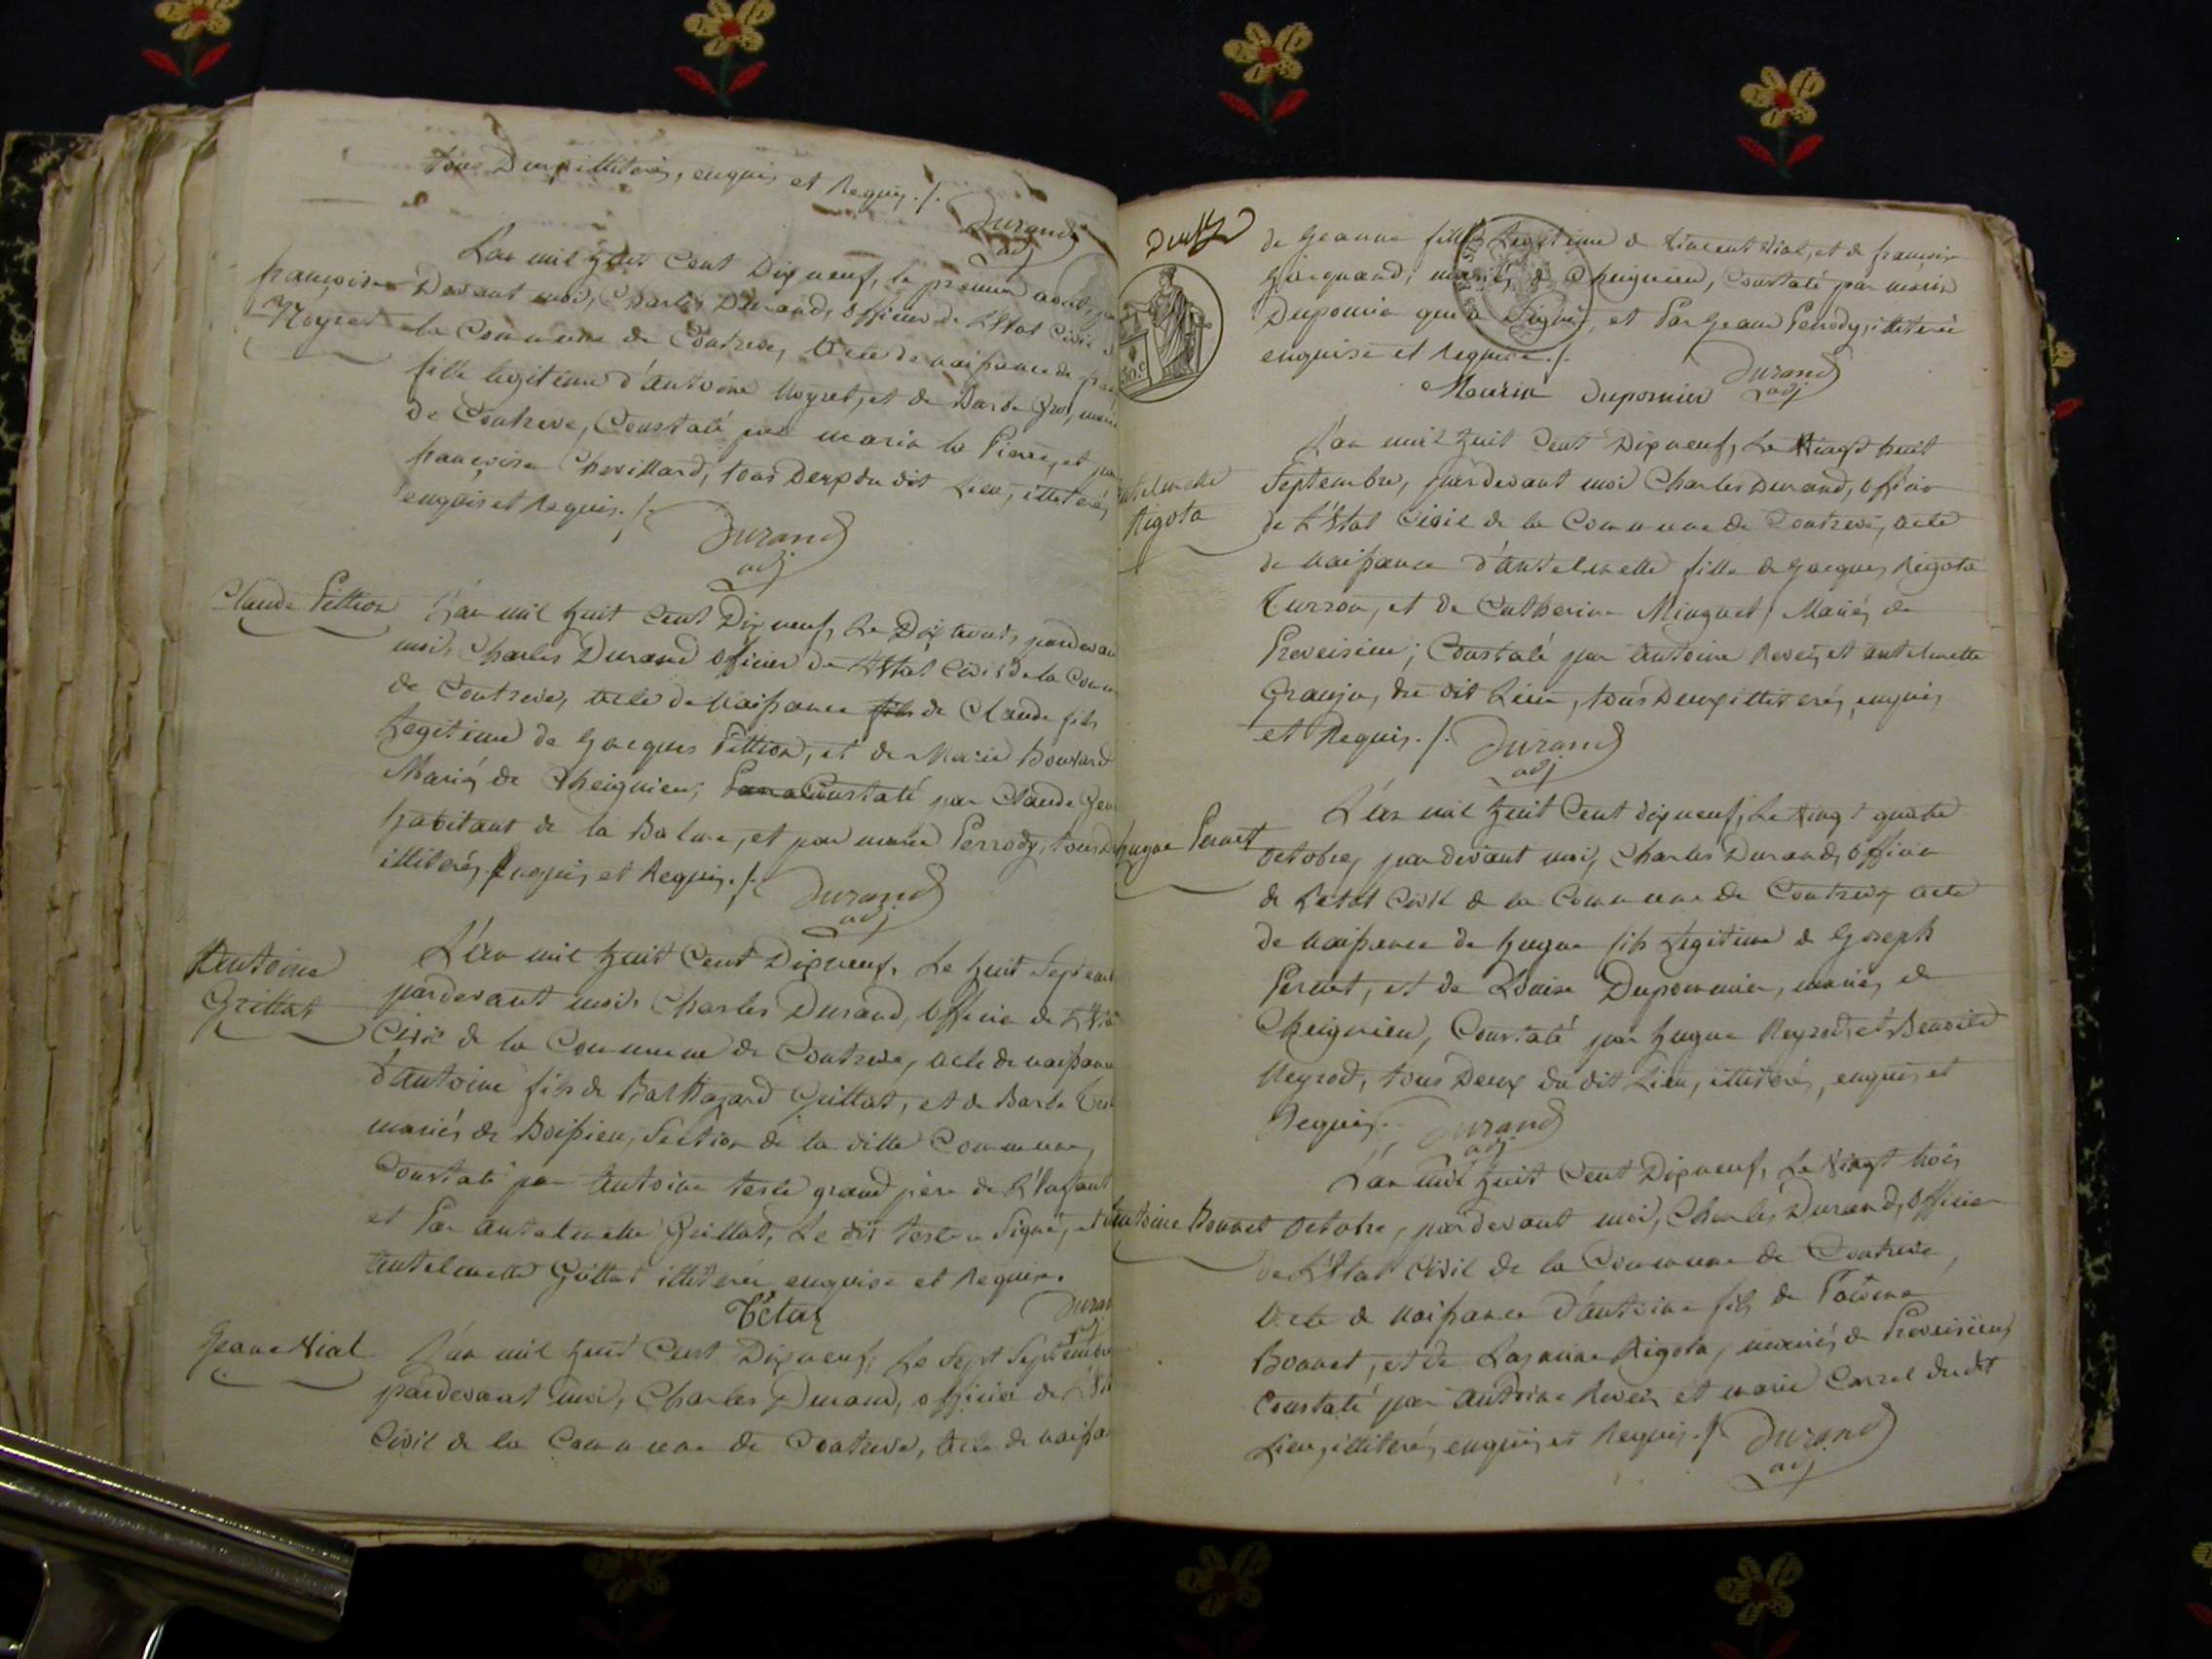 tous Deux illiterés, enquis et Requis ./.
Durand
adj
L'an mil huit Cent Dix neuf, le premier août, par
françoise Devant moi, Charles Durand, officier de L'Etat Civil de
Moyret la Commune de Contrevé, acte de naissance de
fille legitime d'antoine Moyret, et de Barbe Gros, mariés
de Contrevé, Constaté par maria la Pierre, et par
françoise Chevillard, tous Deux du dit Lieu, illiterés
enquis et Requis ./.
Durand
adj
Claude Pittion L'an mil huit Cent Dix neuf, Le Dix août, pardevant
moi, Charles Durand officier de L'Etat Civil de la Comm
de Contrevé, acte de Naissance fils de Claude fils
Legitime de Jacques Pittion, et de Marie Bouvard
Mariés de Cheignieu; Constaté par Claude
habitant de la Balme, et par marie Perrody, tous
illiterés Enquis et Requis ./.
Durand
adj
Antoine L'an mil huit Cent Dix neuf, Le huit Septem
Grillat pardevant moi, Charles Durand, officier de L'Eta
Civil de la Commune de Contrevé, acte de naissance
d'antoine fils de Balthazard Grillat, et de Barbe
mariés de Boissieu, Section de la ditte Commune,
Constaté par antoine teste grand père de L'Enfant
et Par antelmette Grillat, Le dit teste a Signé, et
antelmette Grillat illiterée enquise et Requise.
Durand
adj
Jeane Vial L'an mil huit Cent Dix neuf, Le Sept Septembre
pardevant moi, Charles Durand, officier de L'Et
Civil de la Commune de Contrevé, acte de naissa
de Jeanne fille Legitime de Vincent Vial, et de françoise
Jacquand, mariés de Cheignieu, Constaté par marie
Duponnier qui a Signé, et Par Jeane Perrody, illiterée
enquise et Requise ./.
Durand
adj
Mourin Duponnier
L'an mil huit Cent Dix neuf, Le Vingt huit
antelmette Septembre, pardevant moi Charles Durand, officier
Rigota de L'Etat Civil de la Commune de Contrevé, acte
de naissance d'antelmette fille de Jacques Rigota
Turron, et de Catherine Minguet, Mariés de
Preveisieu; Constaté par antoine Revey, et antelmette
Granju, du dit Lieu, tous Deux illiterés, enquis
et Requis ./.
Durand
adj
L'an mil huit Cent dix neuf, Le Vingt quatre
hugue Pernet octobre, pardevant moi, Charles Durand, officier
de L'etat Civil de la Commune de Contrevé, acte
de naissance de hugue fils Legitime de Joseph
Pernet, et de Louise Duponnier, mariés de
Cheignieu, Constaté par hugue Reyrod, et Benoite
Neyrod, tous Deux du dit Lieu, illiterés, enquis et
Requis.
Durand
adj
L'an mil huit Cent Dix neuf, Le Vingt trois
antoine Bonnet octobre, pardevant moi, Charles Durand, officier
de L'Etat Civil de la Commune de Contrevé,
acte de naissance d'antoine fils de
Bonnet, et de Rigota, mariés de Preveisieu,
Constaté par antoine Revey et marie Carrel du dit
Lieu, illiterés, enquis, et Requis ./.
Durand
adj